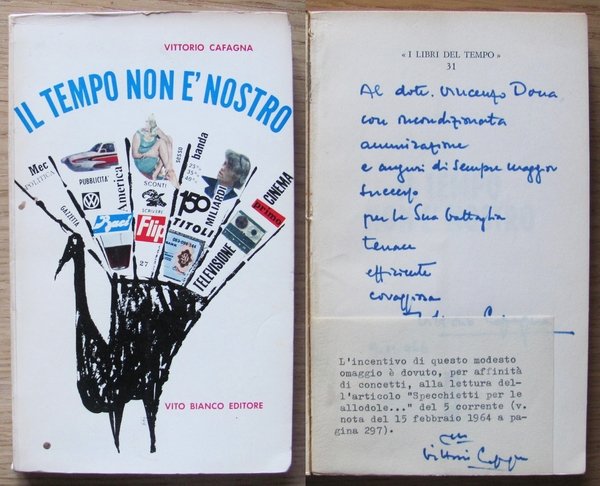 VITTORIO CAFAGNA
IL TEMPO NON E' NOSTRO
Mec
POLITICA
GAZZETTA
PUBBLICITA'
America
SCONTI
SCRIVERE
SESSO
25%
35%
40%
banda
150
TITOLI
MILIARDI
CINEMA
primo
TELEVISIONE
Flip
27
VITO BIANCO EDITORE
« I LIBRI DEL TEMPO »
31
Al dott. Vincenzo Dona
con incondizionata
ammirazione
e auguri di sempre maggior
successo
per la Sua battaglia
tenace
efficiente
coraggiosa
L'incentivo di questo modesto
omaggio è dovuto, per affinità
di concetti, alla lettura del-
l'articolo "Specchietti per le
allodole..." del 5 corrente (v.
nota del 15 febbraio 1964 a pa-
gina 297).